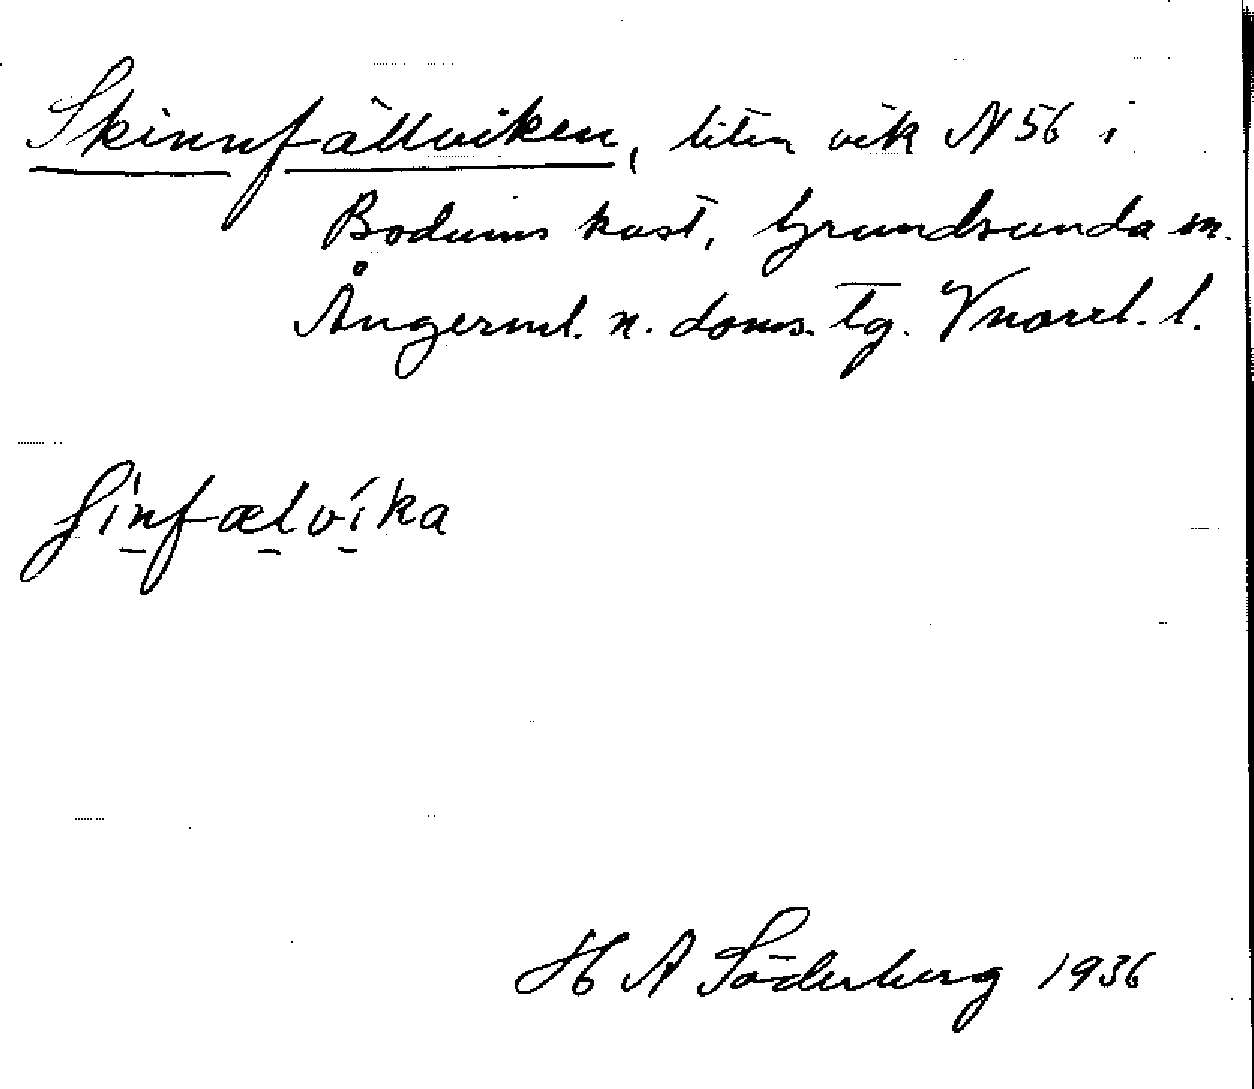 Skinnfällviken, liten vik N 56 i
Bodums kast, Grundsunda sn.
Ångerml. n. doms. tg. Vnorrl. l.
ʃinfælvíka
H A Söderberg 1936